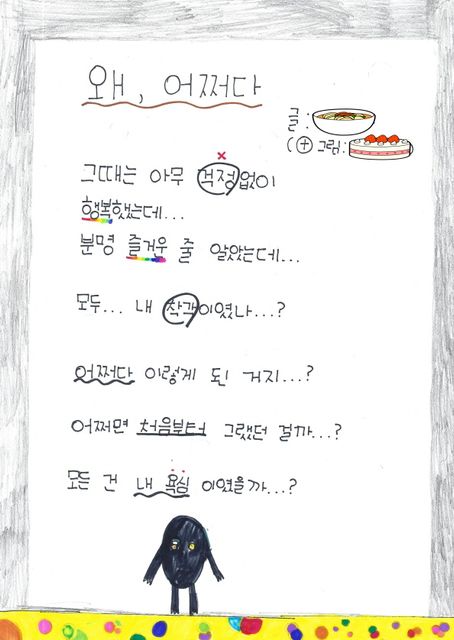 왜, 어쩌다
글:
(+그림:
그때는 아무 걱정없이
행복했는데...
분명 즐거운 줄 알았는데...
모두... 내 착각이였나...?
어쩌다 이렇게 된 거지...?
어쩌면 처음부터 그랬던 걸까...?
모든 건 내 욕심 이였을까...?